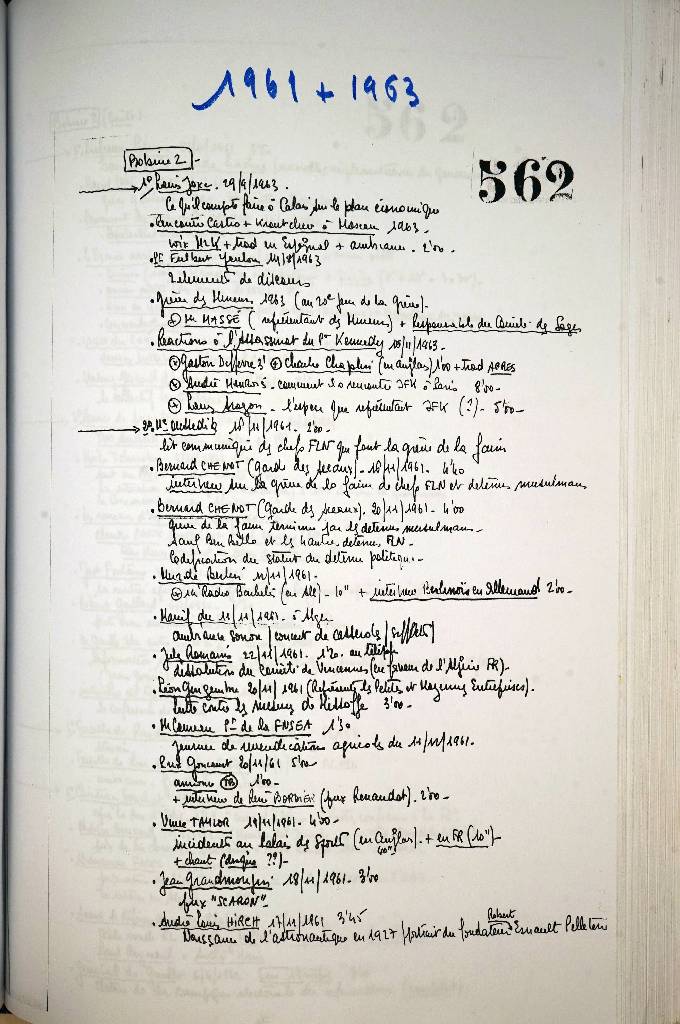 1961 + 1963
562
Bobine 2 -
1° Louis Joxe. 29/9/1963.
Ce qu'il compte faire à Calais sur le plan économique
. Rencontre Castro + Kroutchev à Moscou 1963.
voix + trad en Espagnol + ambiance. 2'00.
. Fulbert Youlou 1963
2 éléments de discours
. Grève des Mineurs 1963 (au 20e jour de la grève).
Mr MASSÉ (représentant des Mineurs) + Responsable du Comité des Sages
. Réactions à l'Assassinat du Pt Kennedy /11/1963.
Gaston Defferre 3' Charlie Chaplin (en anglais) 1'00 + trad APRES
André Maurois - comment il a rencontré JFK à Paris 8'00 -
Louis Aragon - l'espoir que représentait JFK (?) - 5'00 -
2° 18/11/1961. 2'00 -
lit communiqué des chefs FLN qui font la grève de la faim
. Bernard CHENOT (garde des sceaux) - 18/11/1961 - 4'40
interview sur la grève de la faim de chefs FLN et détenus musulmans
. Bernard CHENOT (Garde des sceaux). 20/11/1961 - 4'00
grève de la faim terminée par les détenus musulmans -
sauf Ben Bella et les 4 autres détenus FLN -
Codification du statut du détenu politique -
. Mur de Berlin /11/1961 -
Radio (en All) - 10" + interview Berlinois en Allemand 2'00 -
. Manif du 11/11/1961 - à Alger
ambiance sonore / concert de casseroles / sifflets /
. Jules Romains 22/11/1961. 1'20. au téléph
dissolution du Comité de Vincennes (en faveur de l'Algérie FR) -
. Léon Gingembre 20/11/1961 (Représente les Petites et Moyennes Entreprises).
lutte contre les mesures de 3'00 -
. Mr Pt de la FNSEA 1'30
Journée de revendications agricoles du 11/1961.
. Prix Goncourt 20/11/61 5'00
annonce TB 1'00 -
+ interview de René BORDIER (prix Renaudot). 2'00 -
. Vince TAYLOR 19/11/1961 - 4'00
incidents au Palais des Sports (en anglais) - + en FR (10") -
40"
+ chant (disque ??) -
. Jean Grandmougin 18/11/1961 - 3'00
prix "SCARRON" -
. André Louis HIRCH 17/11/1961 3'45
Robert
Naissance de l'astronautique en 1927 / portrait du fondateur Esnault Pelleterie